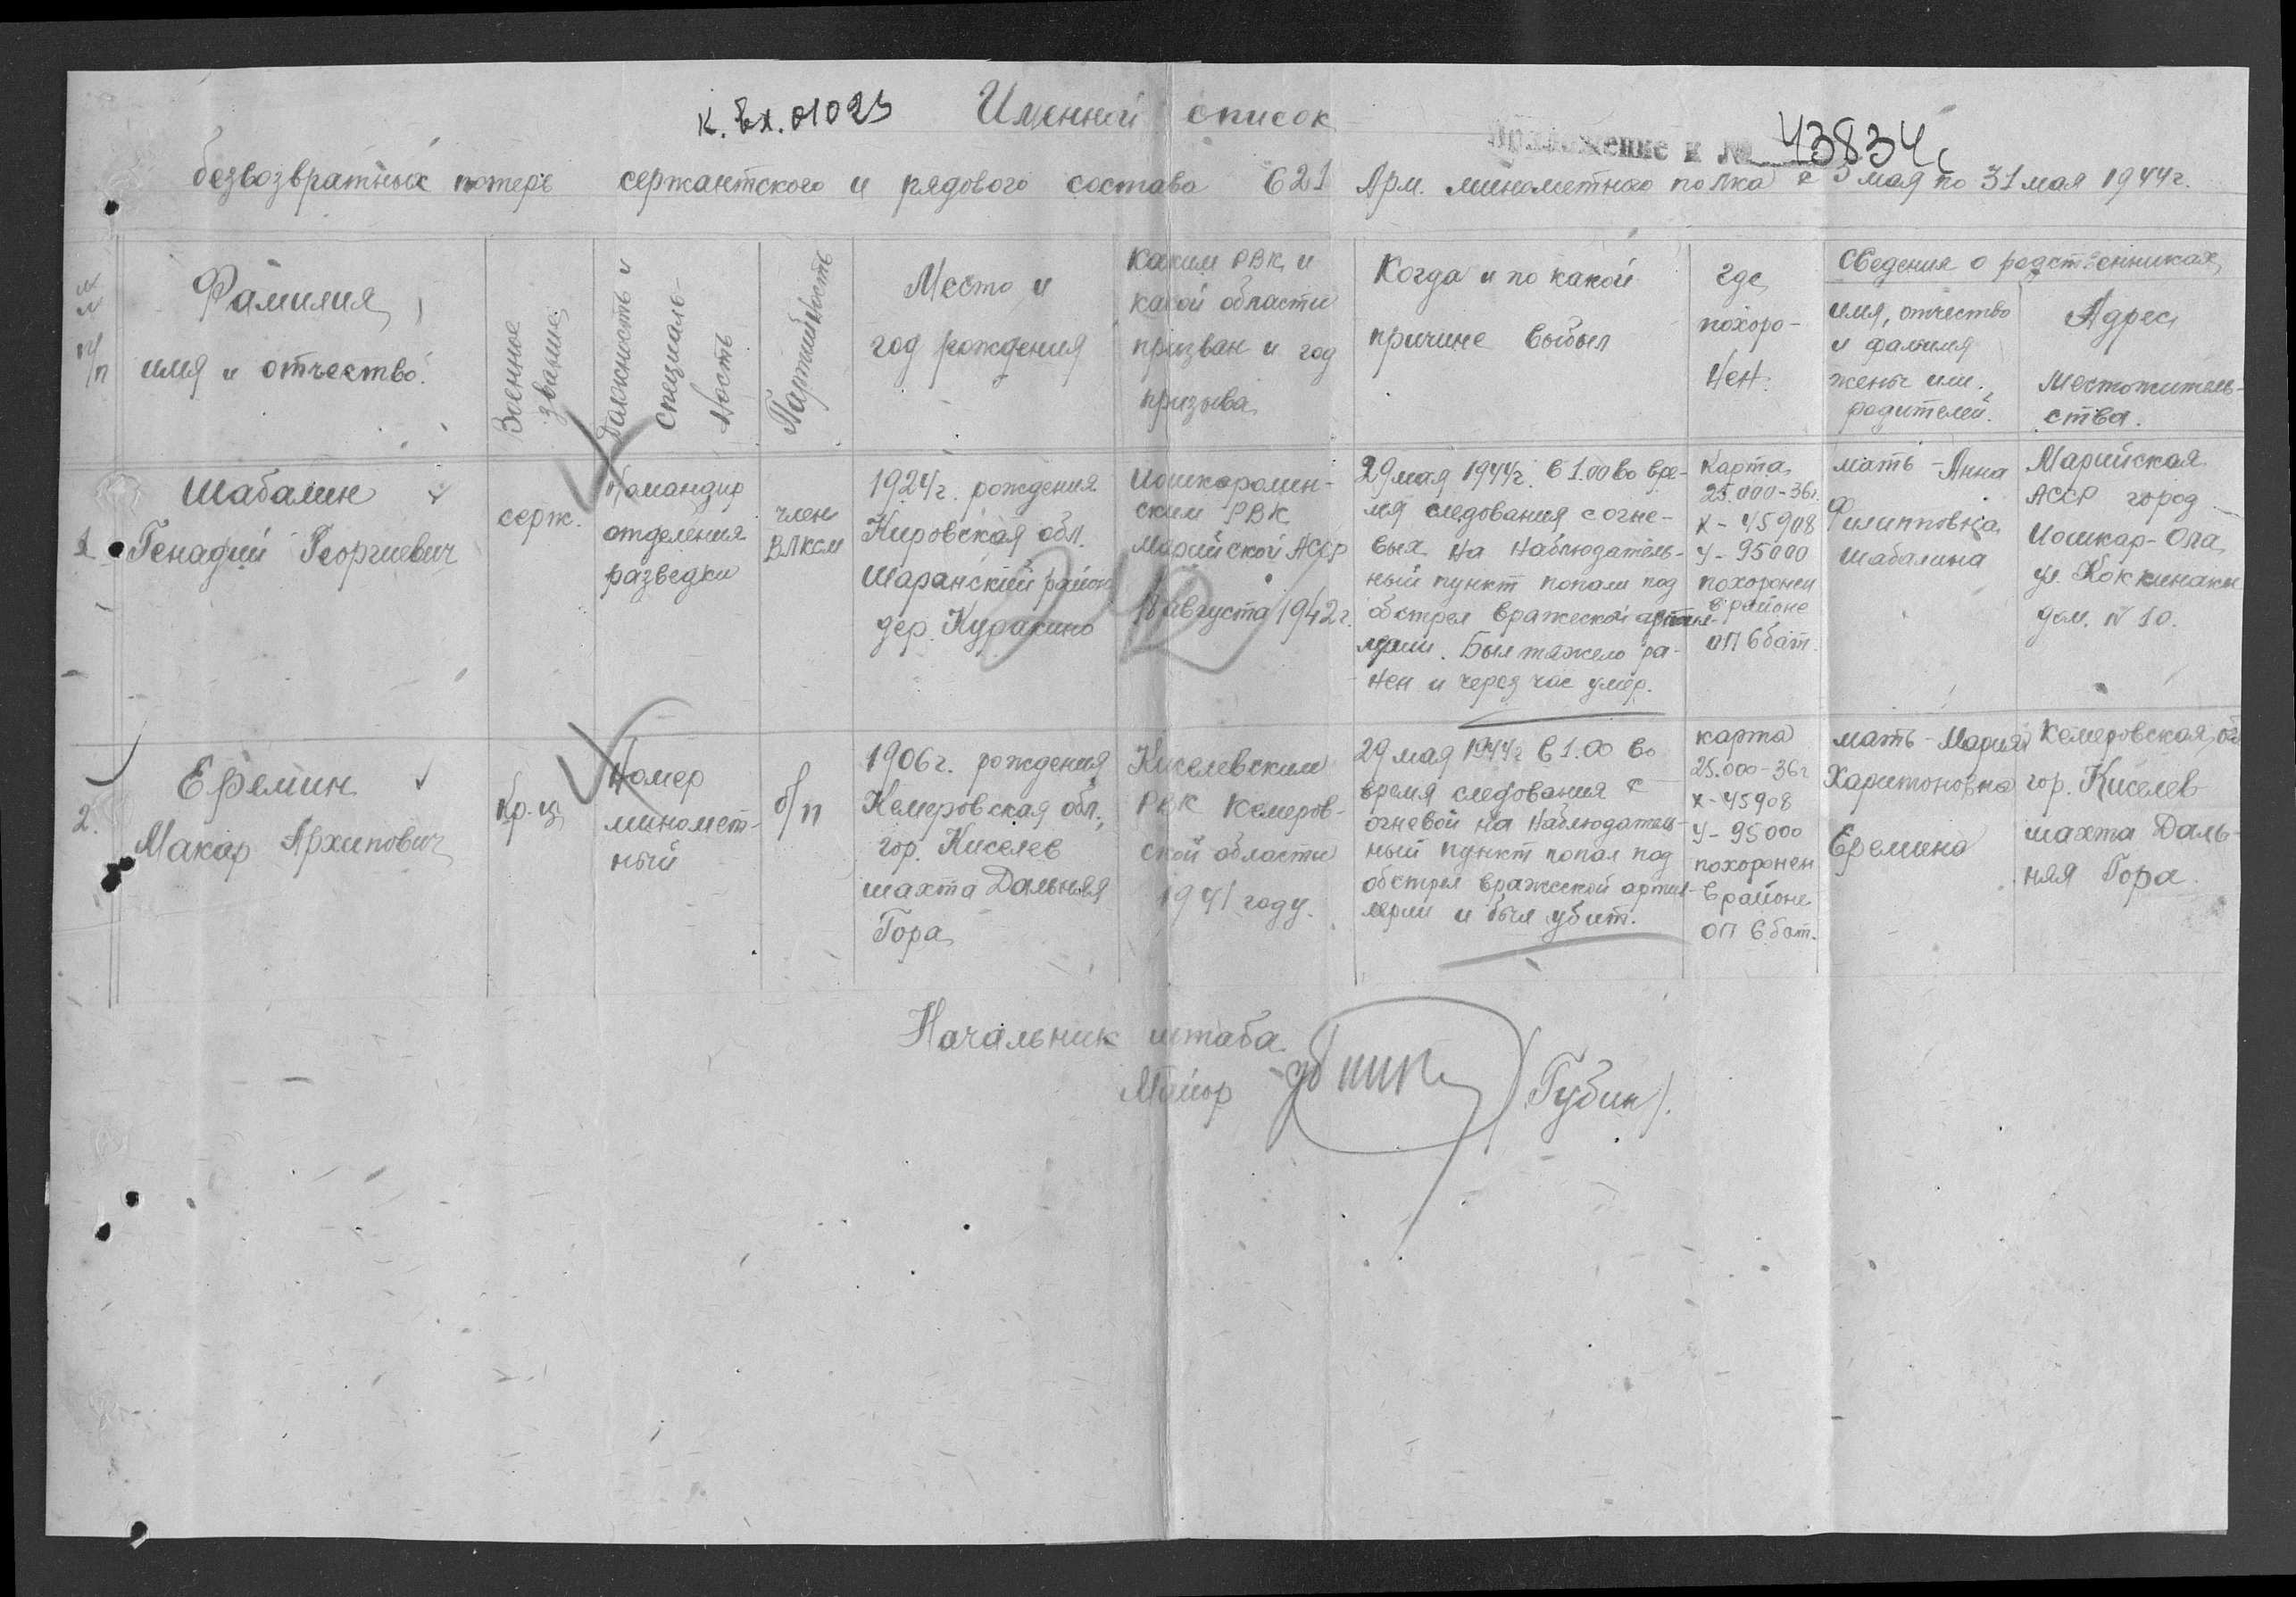 к. Вх. 01023
Именной список
Приложение к № 43834с
безвозвратных потерь сержантского и рядового состава 621 Арм. минометного полка с 5 мая по 31 мая 1944г.
№ № п/п
Фамилия,
имя и отчество.
Военное
звание
Должность и
специаль-
ность
Партийность
Место и
год рождения
Каким РВК и
какой области
призван и год
призыва
Когда и по какой
причине выбыл
Где
похоро-
нен.
Сведения о родственниках
имя, отчество
и фамилия
жены или
родителей.
Адрес
Местожитель-
ства.
1
Шабалин
Генадий Георгиевич
серж.
Командир
отделения
разведки
член
ВЛКСМ
1924г. рождения
Кировская обл.
Шаранский район
дер. Куракино
Иошкаролин-
ским РВК
Марийской АССР
18 августа 1942г.
29 мая 1944г. в 1.00 во вре-
мя следования с огне-
вых на наблюдатель-
ный пункт попали под
обстрел вражеской артил-
лерии. Был тяжело ра-
нен и через час умер.
Карта
25.000-36г.
х-45908
у-95000
похоронен
в районе
ОП 6 бат.
мать - Анна
Филипповна
Шабалина
Марийская
АССР город
Иошкар-Ола
ул. Коккинаки
дом. № 10.
2.
Еремин
Макар Архипович
Кр-ц
Номер
миномет-
ный
б/п
1906г. рождения
Кемеровская обл.,
гор. Киселев
шахта Дальняя
Гора
Киселевским
РВК Кемеров-
ской области
1941 году.
29 мая 1944г в 1.00 во
время следования с
огневой на наблюдатель-
ный пункт попал под
обстрел вражеской артил-
лерии и был убит.
карта
25.000-36г
х-45908
у-95000
похоронен
в районе
ОП 6 бат.
мать - Мария
Харитоновна
Еремина
Кемеровская об
гор. Киселев
шахта Даль-
няя Гора.
Начальник штаба
Майор (Губин).